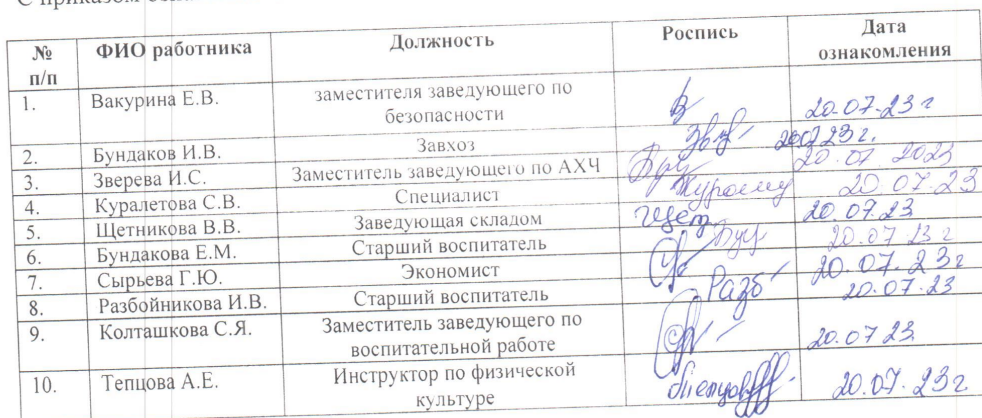 С приказом
№ п/п ФИО работника Должность Роспись Дата ознакомления
1. Вакурина Е.В. заместителя заведующего по безопасности 20.07.23 г
2. Бундаков И.В. Завхоз 20.07.23 г.
3. Зверева И.С. Заместитель заведующего по АХЧ 20.07.2023
4. Куралетова С.В. Специалист 20.07.23
5. Щетникова В.В. Заведующая складом Щет 20.07.23
6. Бундакова Е.М. Старший воспитатель 20.07.23 г
7. Сырьева Г.Ю. Экономист 20.07.23 г
8. Разбойникова И.В. Старший воспитатель Разб 20.07.23
9. Колташкова С.Я. Заместитель заведующего по воспитательной работе 20.07.23
10. Тепцова А.Е. Инструктор по физической культуре 20.07.23 г